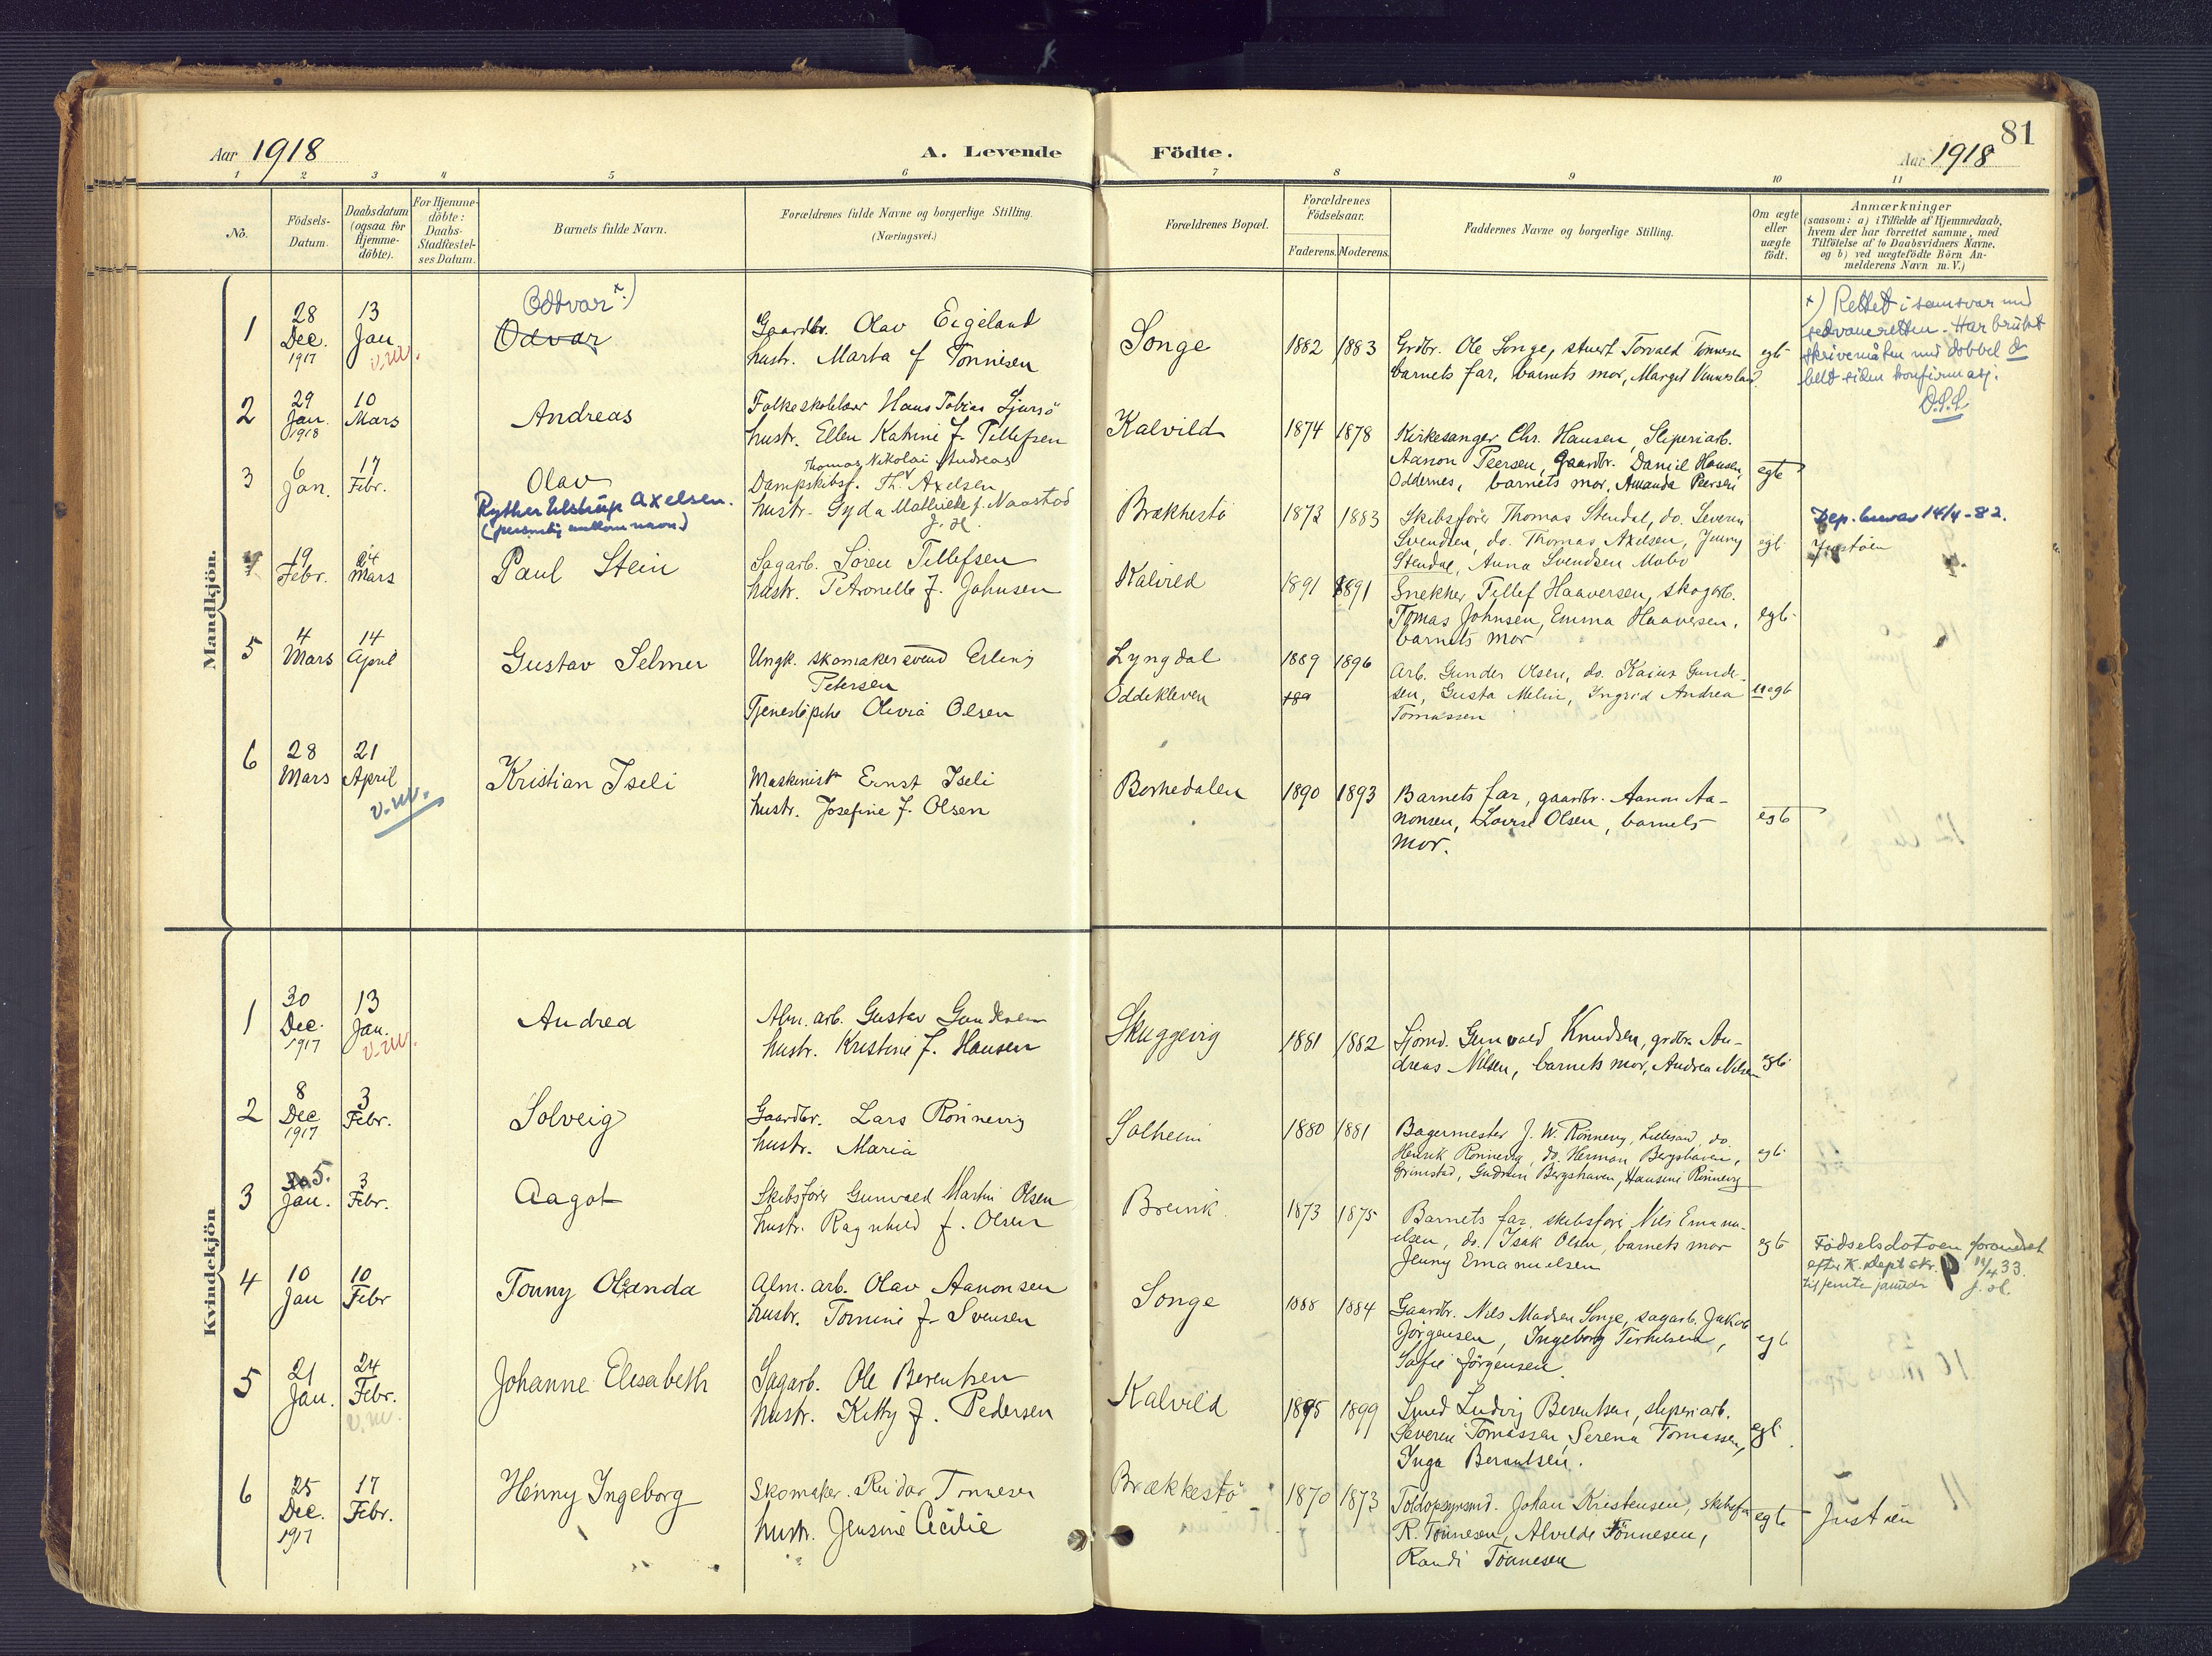 81
Aar 1918
A. Levende
Födte.
Aar 1918
1 2 3 4 5 6 7 8 9 10 11
No.
Födsels-Datum.
Daabsdatum (ogsaa for Hjemme-döbte).
For Hjemme-döbte: Daabs-Stadfæstel-ses Datum.
Barnets fulde Navn.
Forældrenes fulde Navne og borgerlige Stilling.
(Næringsvei.)
Forældrenes Bopæl.
Forældrenes Födselsaar.
Faderens. Moderens.
Faddernes Navne og borgerlige Stilling.
Om ægte eller uægte födt.
Anmærkninger
(saasom: a) i Tilfælde af Hjemmedaab,
hvem der har forrettet samme, med
Tilföielse af to Daabsvidners Navne.
og b) ved uægtefödte Börn An-
melderens Navn m. V.)
Mandkjön.
1
28 Dec. 1917
13 Jan
v.m.
Oddvar x)
Odvar
Gaardbr. Olav Eigeland
hustr. Marta f Tönnisen
Songe
1882 1883
Grdbr. Ole Songe, stuert Torvald Tönnesen
barnets far, barnets mor, Margit Venneslad
egt
x) Rettet i samsvar med
sedvaneretten. Har brukt
skrivemåten med dobbel d
helt siden konfirmasj.
O.S.L
2
29 Jan. 1918
10 Mars
Andreas
Folkeskolelærer Hans Tobias
hustr. Ellen Katrine f. Tellefsen
Kalvild
1874 1878
Kirkesanger Chr. Hansen, Sliperiarb.
Aanon Peersen, gaardbr. Daniel Hansen
Oddernes, barnets mor, Amanda Peersen
egte
3
6 Jan.
17 Febr.
Olav
Ryther Ulstrup Axelsen.
(personlig mellomnavn)
Thomas Nikolai Andreas
Dampskibsf. Th. Axelsen
hustr. Gyda Mathilde f. Naastad
Brækkestö
1873 1883
Skibsförer Thomas Stendal, do. Severin
Svendsen, do. Thomas Axelsen, Jenny
Stendal, Anna Svendsen
egt
Dep. brev av 14/4-82.
Justöen
4
19 Febr.
24 Mars
Paul Stein
Sagarb. Sören Tellefsen
hustr. Petronelle f. Johnsen
Kalvild
1891 1891
Snekker Tellef Haaversen, skogarb.
Tomas Johnsen, Emma Haaversen,
barnets mor
egt
5
4 Mars
14 April
Gustav Selmer
Ungk. skomakersvend Erling
Petersen
Tjenestepike Olivia Olsen
Lyngdal
Oddekleven
1889 1896
189
Arb. Gunder Olsen, do. Kaius Gunder-
sen, Gusta Melin, Yngrid Andrea
Tomassen
uegt
6
28 Mars
21 April
v.m.
Kristian Iseli
Maskinist Ernst Iseli
hustr. Josefine f. Olsen
Borkedalen
1890 1893
Barnets far, gaardbr. Aanon Aa-
nonsen, Lovise Olsen, barnets
mor.
egt
Kvindekjön
1
30 Dec. 1917
13 Jan.
v.m.
Andrea
Alm. arb. Gustav Gundersen
hustr. Kristine f. Hansen
Skuggevig
1881 1882
Sjömd. Gunvald Knudsen, grdbr. An-
dreas Nilsen, barnets mor, Andrea Nilsen
egt
2
8 Dec 1917
3 Febr.
Solveig
Gaardbr. Lars Rönnevig
hustr. Maria
Solheim
1880 1881
Bagermester J. W. Rönnevig, Lillesand, do.
Henrik Rönnevig, do. Herman Bergshaven,
Grimstad, Gudrun Bergshaven, Hansine Rönnevig
egt
3
5. Jan.
3 Febr.
Aagot
Skibsförer Gunvald Martin Olsen
hustr. Ragnhild f. Olsen
Breivik
1873 1875
Barnets far, skibsförer Nils Emanu-
elsen, do. Isak Olsen, barnets mor
Jenny Emanuelsen
egt
Födselsdatoen forandret
efter K. dept skr. 11/4 33.
til femte januar
4
10 Jan
10 Febr
Tonny Olanda
Alm. arb. Olav Aanonsen
hustr. Tomine f. Svensen
Songe
1888 1884
Gaardbr. Nils Madsen Songe, sagarb. Jakob
Jörgensen, Ingeborg Terkelsen,
Sofie Jörgensen.
egt
5
21 Jan.
24 Febr.
v.m.
Johanne Elisabeth
Sagarb. Ole Berentsen
hustr. Kitty f. Pedersen
Kalvild
1895 1899
Smed Ludvig Berentsen, sliperiarb.
Severin Tomassen, Serena Tomassen,
Inga Berentsen.
egt
6
25 Dec. 1917
17 Febr.
Henny Ingeborg
Skomaker. Reidar Tönnesen
hustr. Jensine Cecilie
Brækkestö
1870 1873
Toldopsynsmd. Johan Kristensen, skibsf.
R. Tönnesen, Alvilde Tönnesen,
Randi Tönnesen
egt
Justöen